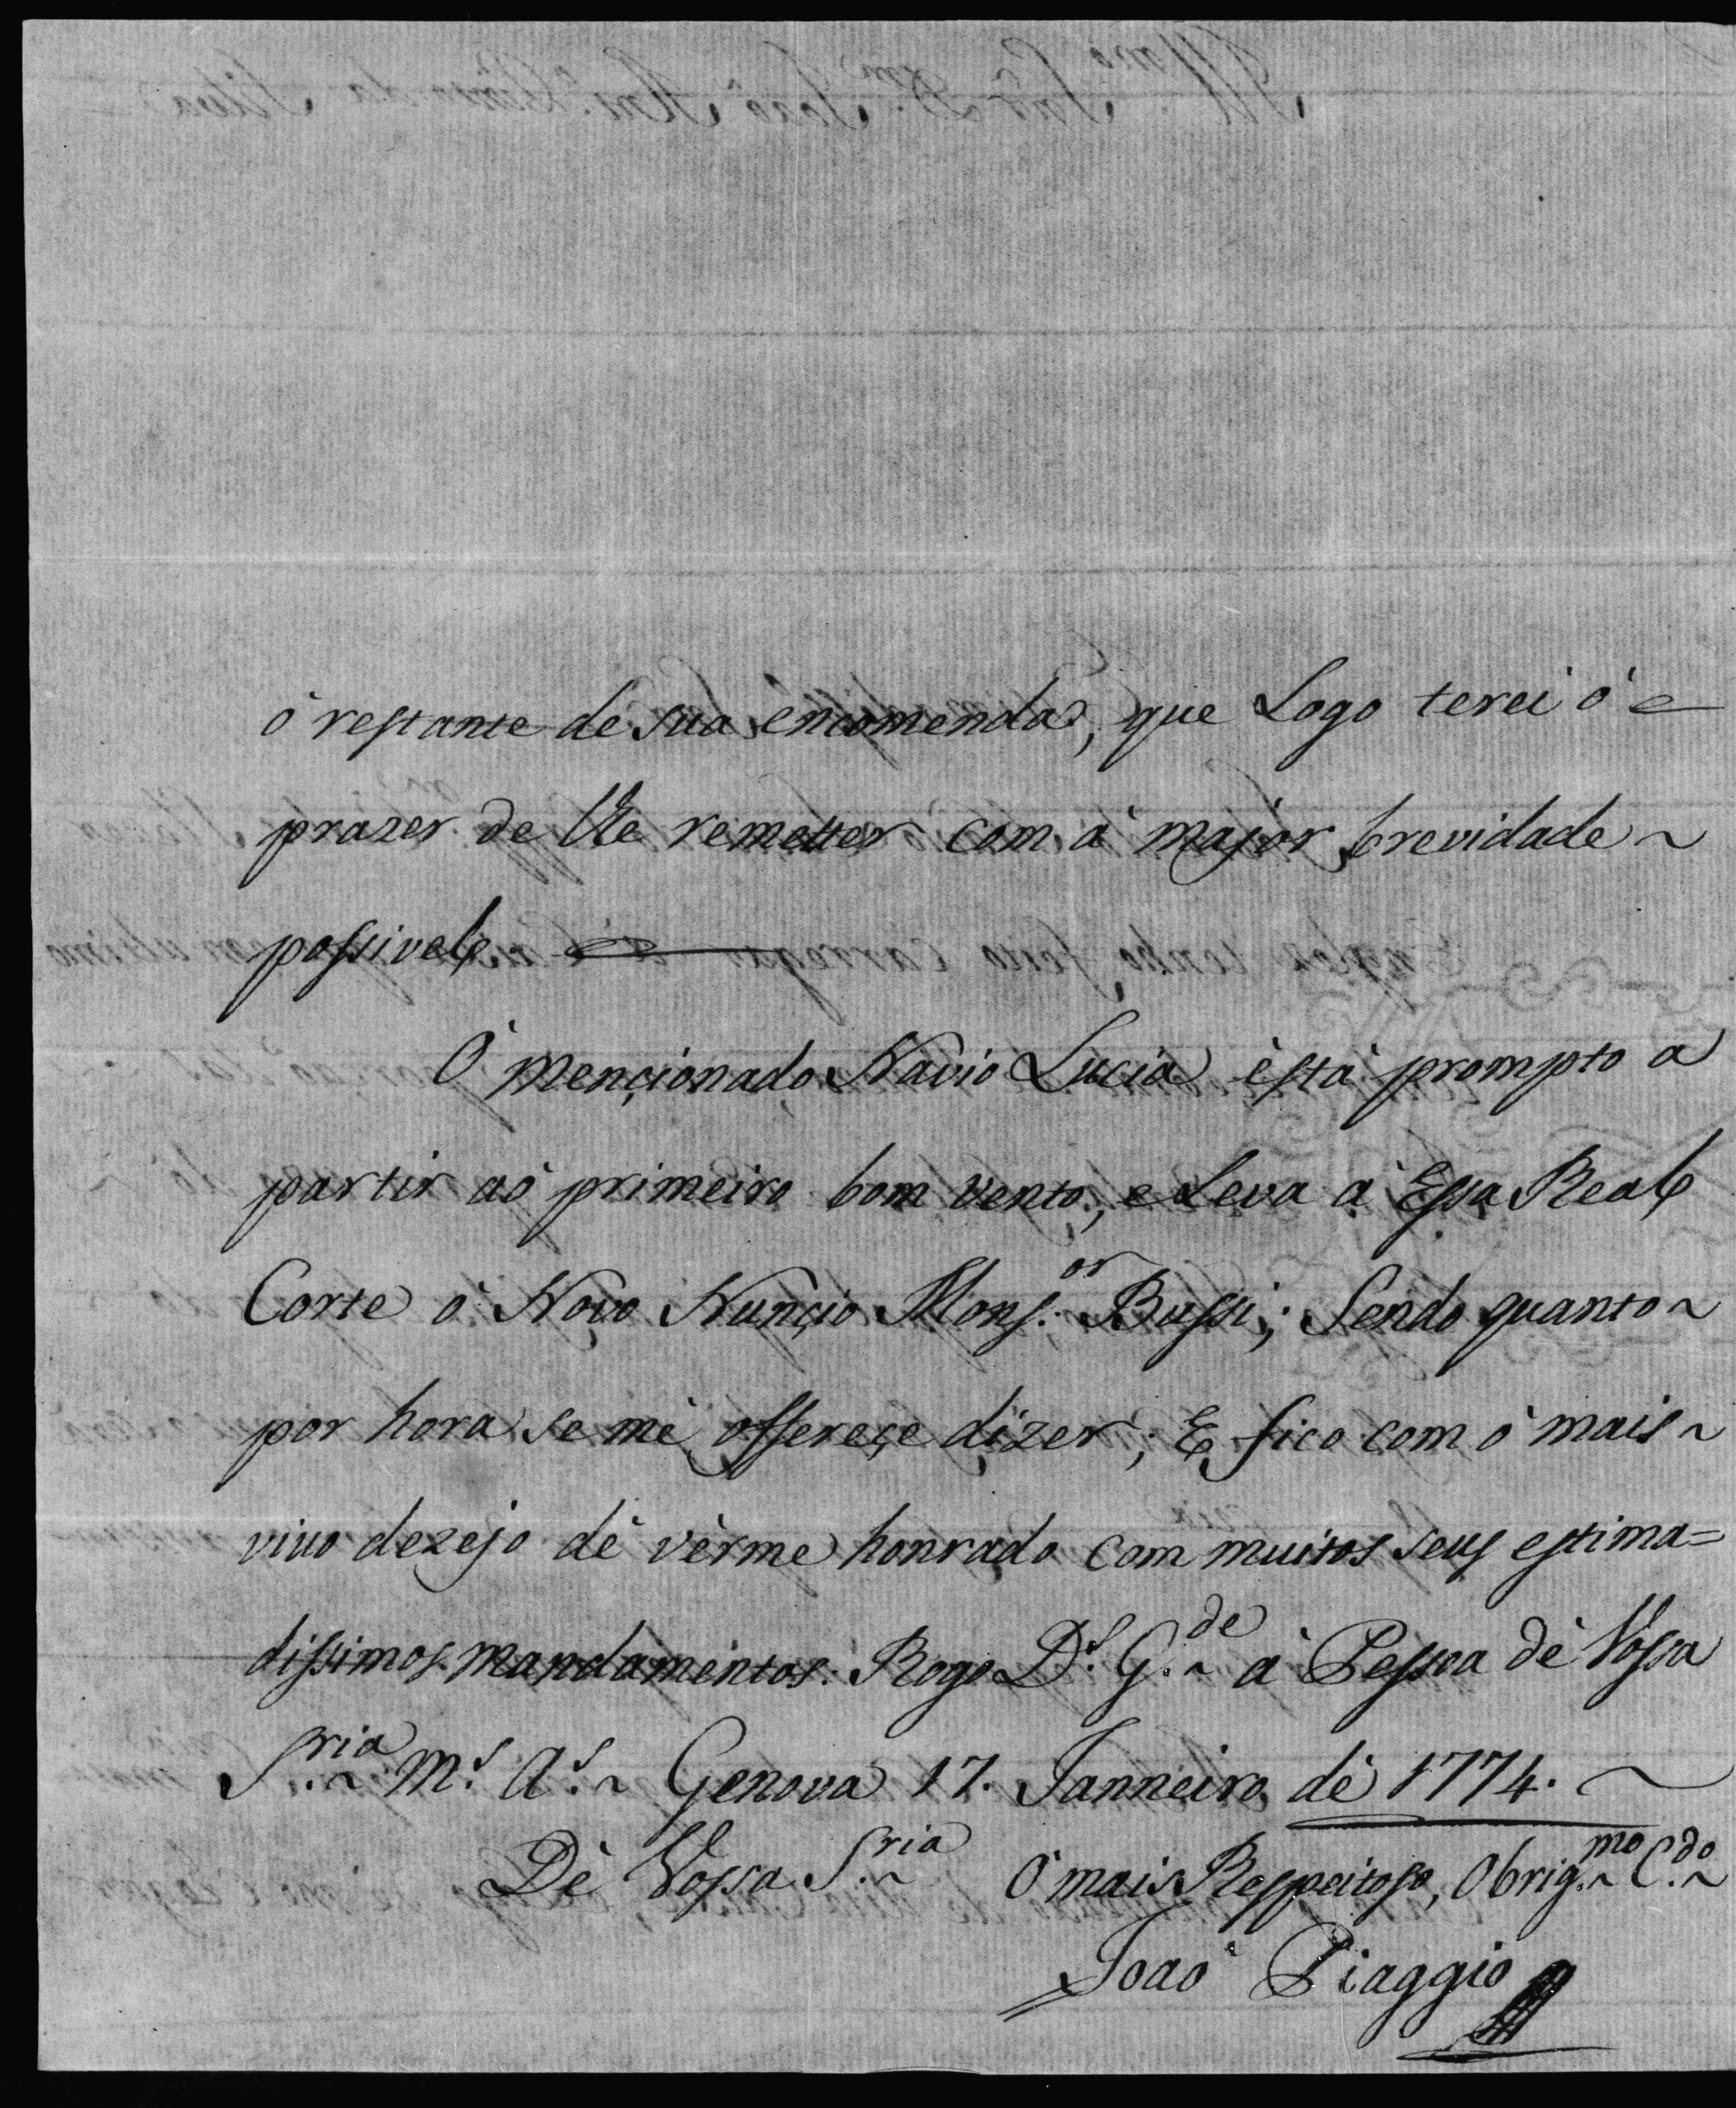 ò restante de sua encomenda, que Logo terei ò
prazer de lhe remetter com à major brevidade ~
possivel
Ò mençionado Navio Lucia èstà prompto a
partir aò primeiro bom vento, e Leva à Essa Real
Corte ò Novo Nunçio Mons.or Bussi; Sendo quanto ~
por hora se mè offereçe dizer; E fico com ò mais ~
vivo dezejo dè vèrme honrado com muitos seus estima=
dissimos mandamentos. Rogo D.s G.de à Pessoa dè Vossa
S.ria m.s a.s ~ Genova 17. Janneiro dè 1774. ~
Dè Vossa S.ria Ò mais Respeitoso, Obrig.mo C.do
Joaò Piaggio